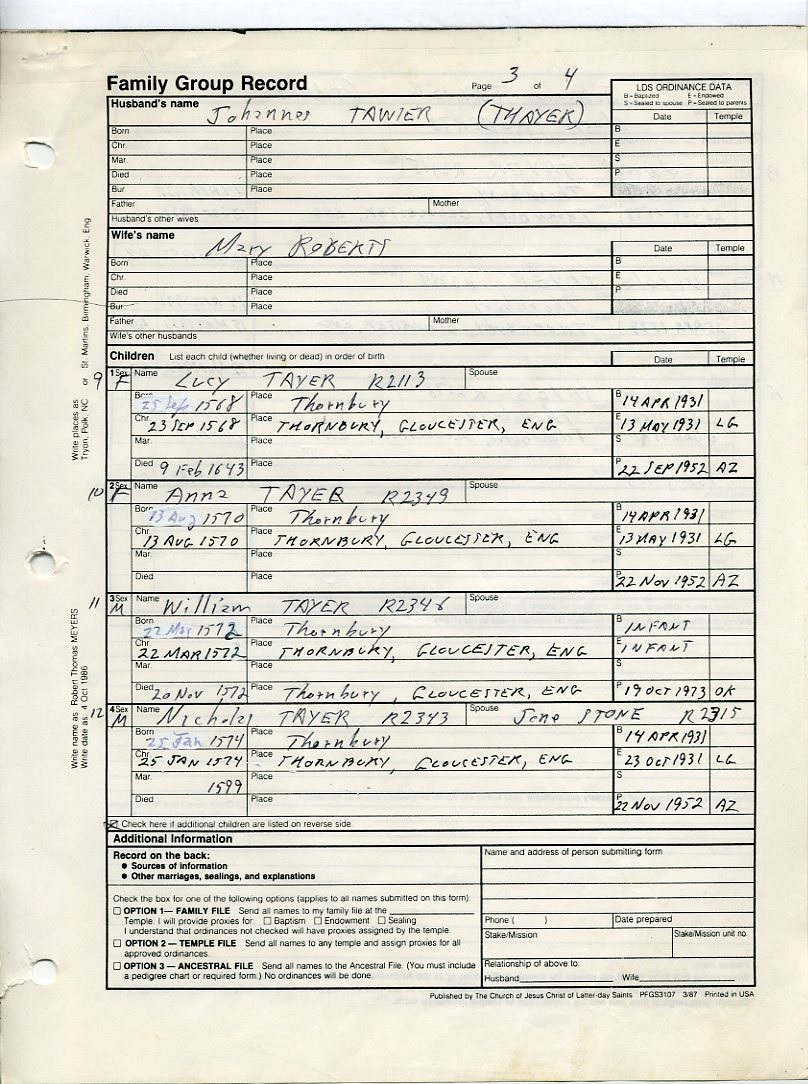 Family Group Record
Page 3 of 4
LDS ORDINANCE DATA
B = Baptized E = Endowed
S = Sealed to spouse P = Sealed to parents
Husband's name Johannes TAWIER (THAYER)
Date Temple
Born Place B
Chr. Place E
Mar. Place S
Died Place P
Bur Place
Father Mother
Husband's other wives
Wife's name Mary ROBERTS
Date Temple
Born Place B
Chr. Place E
Died Place P
Bur. Place
Father Mother
Wife's other husbands
Children List each child (whether living or dead) in order of birth Date Temple
9 1 Sex F Name Lucy TAYER R2113 Spouse
Born 25 Sep 1568 Place Thornbury B 14 APR 1931
Chr. 23 SEP 1568 Place THORNBURY, GLOUCESTER, ENG E 13 MAY 1931 LG
Mar. Place S
Died 9 Feb 1643 Place P 22 SEP 1952 AZ
10 2 Sex F Name Anna TAYER R2349 Spouse
Born 13 Aug 1570 Place Thornbury B 14 APR 1931
Chr. 13 AUG 1570 Place THORNBURY, GLOUCESTER, ENG E 13 MAY 1931 LG
Mar. Place S
Died Place P 22 NOV 1952 AZ
11 3 Sex M Name William TAYER R2346 Spouse
Born 22 Mar 1572 Place Thornbury B INFANT
Chr. 22 MAR 1572 Place THORNBURY, GLOUCESTER, ENG E INFANT
Mar. Place S
Died 20 Nov 1572 Place Thornbury, GLOUCESTER, ENG P 19 OCT 1973 OK
12 4 Sex M Name Nicholas TAYER R2343 Spouse Jone STONE R2315
Born 25 Jan 1574 Place Thornbury B 14 APR 1931
Chr. 25 JAN 1574 Place THORNBURY, GLOUCESTER, ENG E 23 OCT 1931 LG
Mar. 1599 Place S
Died Place P 22 NOV 1952 AZ
Check here if additional children are listed on reverse side.
Additional Information
Record on the back:
• Sources of information
• Other marriages, sealings, and explanations
Check the box for one of the following options (applies to all names submitted on this form).
☐ OPTION 1— FAMILY FILE Send all names to my family file at the
Temple. I will provide proxies for: ☐ Baptism ☐ Endowment ☐ Sealing
I understand that ordinances not checked will have proxies assigned by the temple.
☐ OPTION 2 — TEMPLE FILE Send all names to any temple and assign proxies for all
approved ordinances.
☐ OPTION 3 — ANCESTRAL FILE Send all names to the Ancestral File. (You must include
a pedigree chart or required form.) No ordinances will be done.
Name and address of person submitting form
Phone ( ) Date prepared
Stake/Mission Stake/Mission unit no.
Relationship of above to:
Husband Wife
Published by The Church of Jesus Christ of Latter-day Saints PFGS3107 3/87 Printed in USA
Write places as Tryon, Polk, NC or St Martins, Birmingham, Warwick, Eng
Write name as Robert Thomas MEYERS
Write date as 4 Oct 1986